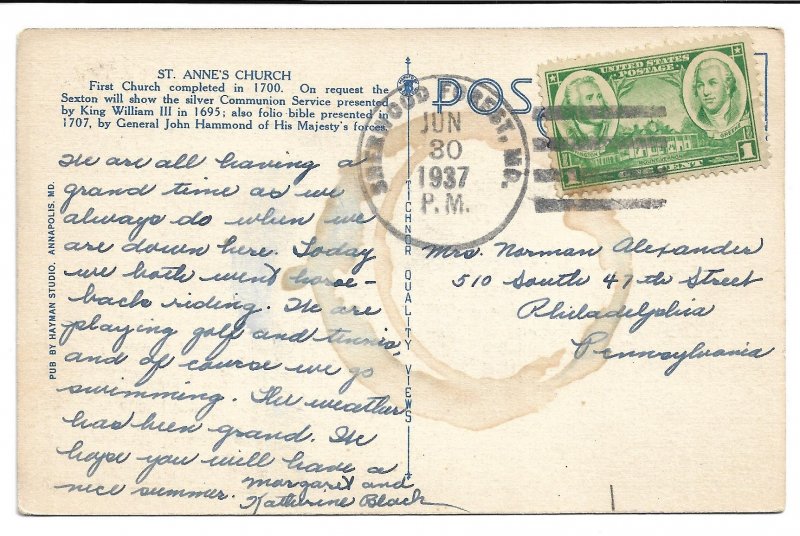 ST. ANNE'S CHURCH
First Church completed in 1700. On request the
Sexton will show the silver Communion Service presented
by King William III in 1695; also folio bible presented in
1707, by General John Hammond of His Majesty's forces.
We are all having a
grand time as we
always do when we
are down here. Today
we both went horse-
back riding. We are
playing golf and tennis,
and of course we go
swimming. The weather
has been grand. We
hope you will have a
nice summer. Margaret and
Katherine Black
PUB BY HAYMAN STUDIO. ANNAPOLIS. MD.
TICHNOR QUALITY VIEWS
POS
SHERWOOD FOREST, MD.
JUN
30
1937
P.M.
UNITED STATES
POSTAGE
GREENE
MOUNT VERNON
1 CENT 1
Mrs. Norman Alexander
510 South 47th Street
Philadelphia
Pennsylvania